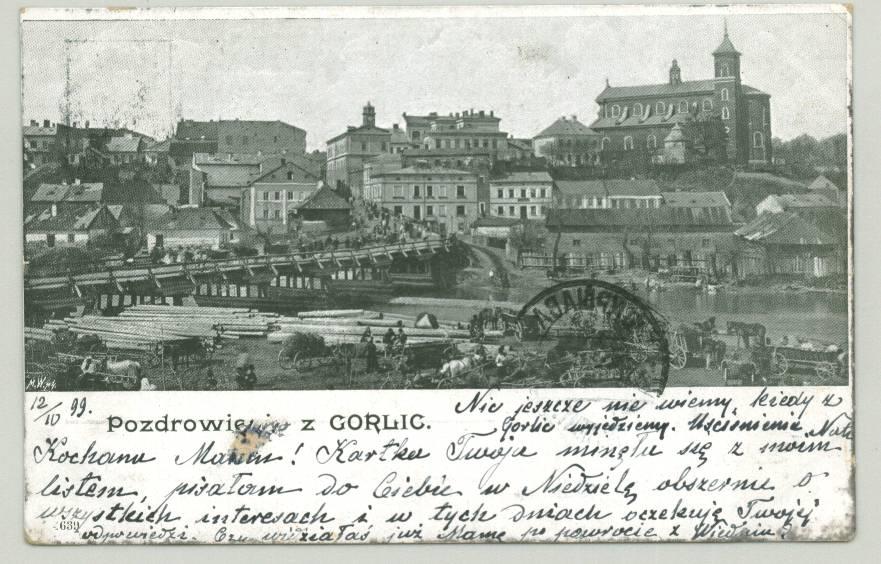 12/10 99.
Pozdrowienie z GORLIC.
Nic jeszcze nie wiemy, kiedy z
Gorlic wyjedziemy. Uściśnienia
Kochana ! Kartka Twoja minęła się z moim
listem, pisałam do Ciebie w Niedzielę obszernie o
wszystkich interesach i w tych dniach oczekuję Twojej
odpowiedzi. Czy widziałaś już Mamę po powrocie z Wiednia?
639